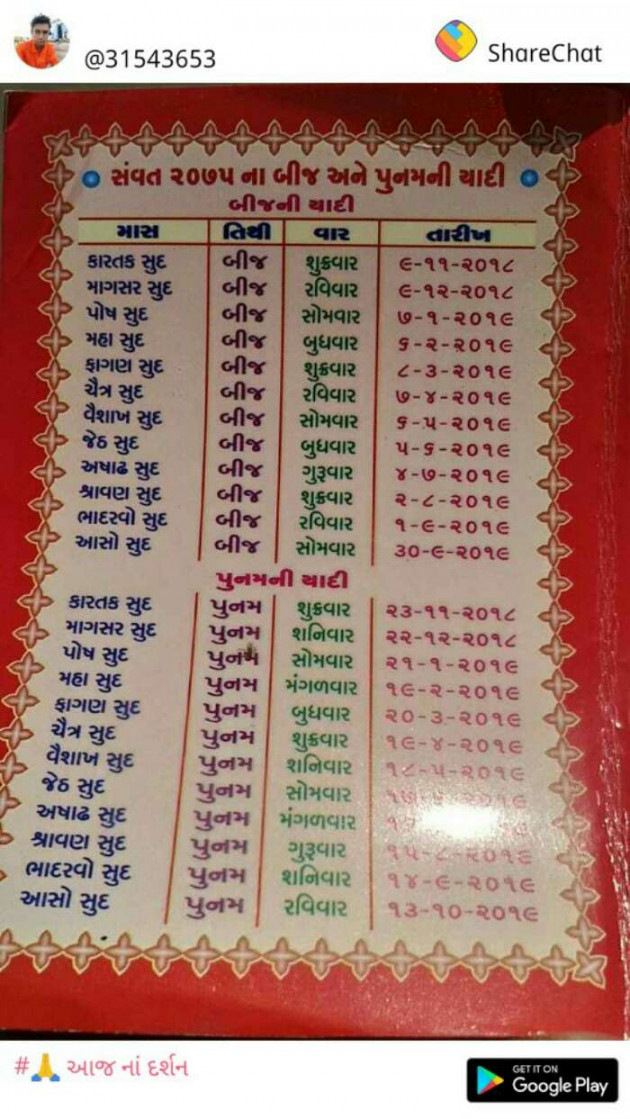 @31543653
ShareChat
સંવત ૨૦૭૫ ના બીજ અને પુનમની યાદી
બીજની યાદી
માસ તિથી વાર તારીખ
કારતક સુદ બીજ શુક્રવાર ૯-૧૧-૨૦૧૮
માગસર સુદ બીજ રવિવાર ૯-૧૨-૨૦૧૮
પોષ સુદ બીજ સોમવાર ૭-૧-૨૦૧૯
મહા સુદ બીજ બુધવાર ૬-૨-૨૦૧૯
ફાગણ સુદ બીજ શુક્રવાર ૮-૩-૨૦૧૯
ચૈત્ર સુદ બીજ રવિવાર ૭-૪-૨૦૧૯
વૈશાખ સુદ બીજ સોમવાર ૬-૫-૨૦૧૯
જેઠ સુદ બીજ બુધવાર ૫-૬-૨૦૧૯
અષાઢ સુદ બીજ ગુરૂવાર ૪-૭-૨૦૧૯
શ્રાવણ સુદ બીજ શુક્રવાર ૨-૮-૨૦૧૯
ભાદરવો સુદ બીજ રવિવાર ૧-૯-૨૦૧૯
આસો સુદ બીજ સોમવાર ૩૦-૯-૨૦૧૯
પુનમની યાદી
કારતક સુદ પુનમ શુક્રવાર ૨૩-૧૧-૨૦૧૮
માગસર સુદ પુનમ શનિવાર ૨૨-૧૨-૨૦૧૮
પોષ સુદ પુનમ સોમવાર ૨૧-૧-૨૦૧૯
મહા સુદ પુનમ મંગળવાર ૧૯-૨-૨૦૧૯
ફાગણ સુદ પુનમ બુધવાર ૨૦-૩-૨૦૧૯
ચૈત્ર સુદ પુનમ શુક્રવાર ૧૯-૪-૨૦૧૯
વૈશાખ સુદ પુનમ શનિવાર ૧૮-૫-૨૦૧૯
જેઠ સુદ પુનમ સોમવાર
અષાઢ સુદ પુનમ મંગળવાર
શ્રાવણ સુદ પુનમ ગુરૂવાર ૧૫-૮-૨૦૧૯
ભાદરવો સુદ પુનમ શનિવાર ૧૪-૯-૨૦૧૯
આસો સુદ પુનમ રવિવાર ૧૩-૧૦-૨૦૧૯
#🙏 આજ નાં દર્શન
GET IT ON
Google Play